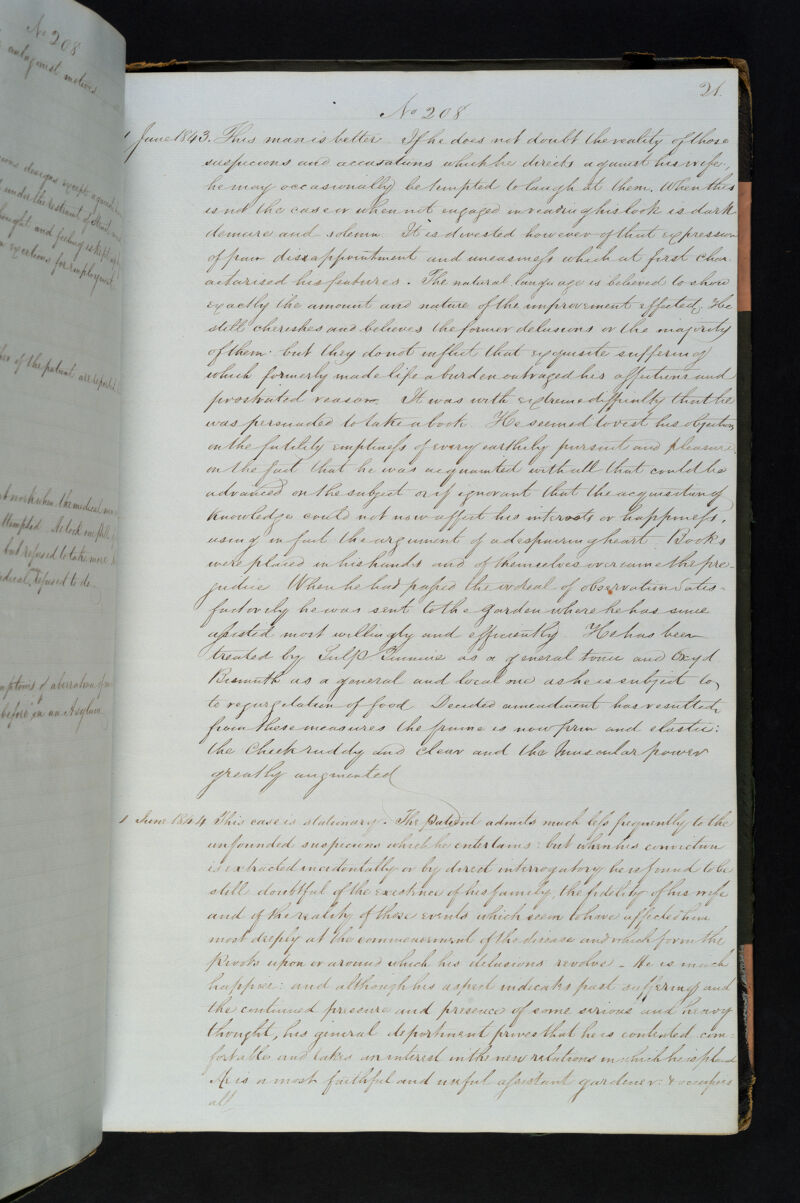 No 208
antagonist motives
designs except against
under the restraint of
thought and feeling is kept
exertions for employment
of the patient are reported
work when the medical
attempted. He took one pill
but refused to take more
medical refused to do
symptoms of aberration of
before in an Asylum
21.
No 208
1 June 1843. This man is better. If he does not doubt the reality of those
suspicions and accusations which he directs against his wife,
he may occasionally be tempted to laugh at them. When this
is not the case or when not engaged in reading his look is dark
demure and solemn. It is divested however of that expression
of pain dissappointment and uneasiness which at first char
actarised his features. The natural language is believed to show
exactly the amount and nature of the improvement effected. He
still cherishes and believes the former delusions or the majority
of them: but they do not inflict that exquisite suffering
which formerly made life a burden outraged his affections and
prostrated reason. It was with extreme difficulty that he
was persuaded to take a book. He seemed to rest his objections
on the futility emptiness of every earthly pursuit and pleasure
on the fact that he was acquainted with all that could be
advanced on the subject or if ignorant that the acquisition of
knowledge could not now affect his interests or happiness,
using in fact the argument of a despairing heart. Books
were placed in his hands and of themselves overcame the pre-
judice. When he had passed the ordeal of observation satis-
factorily he was sent to the garden where he has since
assisted most willingly and efficiently. He has been
treated by Sulp Quininie as a general tonic and Oxyd
Bismuth as a general and local one as he is subject to
to regurgitation of food. Decided amendment has resulted
from these measures the frame is now firm and elastic:
the cheek ruddy and clear and the muscular power
greatly augmented
1 June 1844 This case is stationary. The patient admits much less frequently to the
unfounded suspicions which he entertains: but when his conviction
is extracted incidentally or by direct interrogatory he is found to be
still doubtful of the existence of his family, the fidelity of his wife
and of the reality of those events which seem to have affected him
most deeply at the commencement of the disease and which form the
pivots upon or around which his delusions revolve - He is much
happier: and although his aspect indicates past suffering and
the continued pressure and presence of some serious and heavy
thought, his general deportment proves that he is contented com-
fortable and takes an interest in the new relations in which he is placed
He is a most faithful and useful assistant gardener: & occupies
all